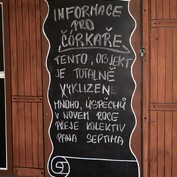 INFORMACE
PRO
ČÓRKAŘE.
TENTO, OBJEKT
JE TOTÁLNĚ
VYKLIZENE
MNOHO, ÚSPĚCHŮ
V NOVEM ROCE
PŘEJE KOLEKTIV
PANA SEPTIMA